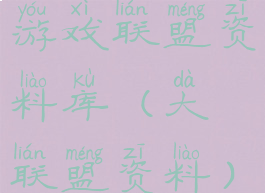 yóu xì lián méng zī
游戏联盟资
liào kù dà
料库（大
lián méng zī liào
联盟资料）